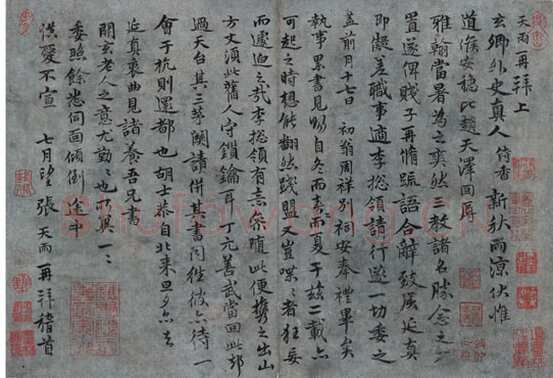 天雨一再拜上
玄卿外史真人 侍者 新秋雨涼伏惟
道候安穩比趙天澤回辱
雅翰當暑為之爽然三教諸名勝念之
置遂俾賤子再脩疏語合辭致 延真
即 差職事適李總領請行遂一切委之
蓋前月十七日 初朔周祥別祠安奉禮畢矣
執事累書見 自冬而春而夏于茲二載亦
可起之時想能翻然踐盟又豈喋喋者狂妄
而遽迫之哉李總領有志參隨此便攜之出山
方丈須此舊人守鎖鑰耳丁元善武當回此
過天台其三茅 請併其書問 彼亦待一
會于杭則還都也胡士恭自北來旦夕亦去
延真衷曲見諸養吾兄書
開玄老人之意尤勤勤也所冀一一
委照餘悉 面傾倒 途中
愛不宣 七月望張天雨再拜稽首